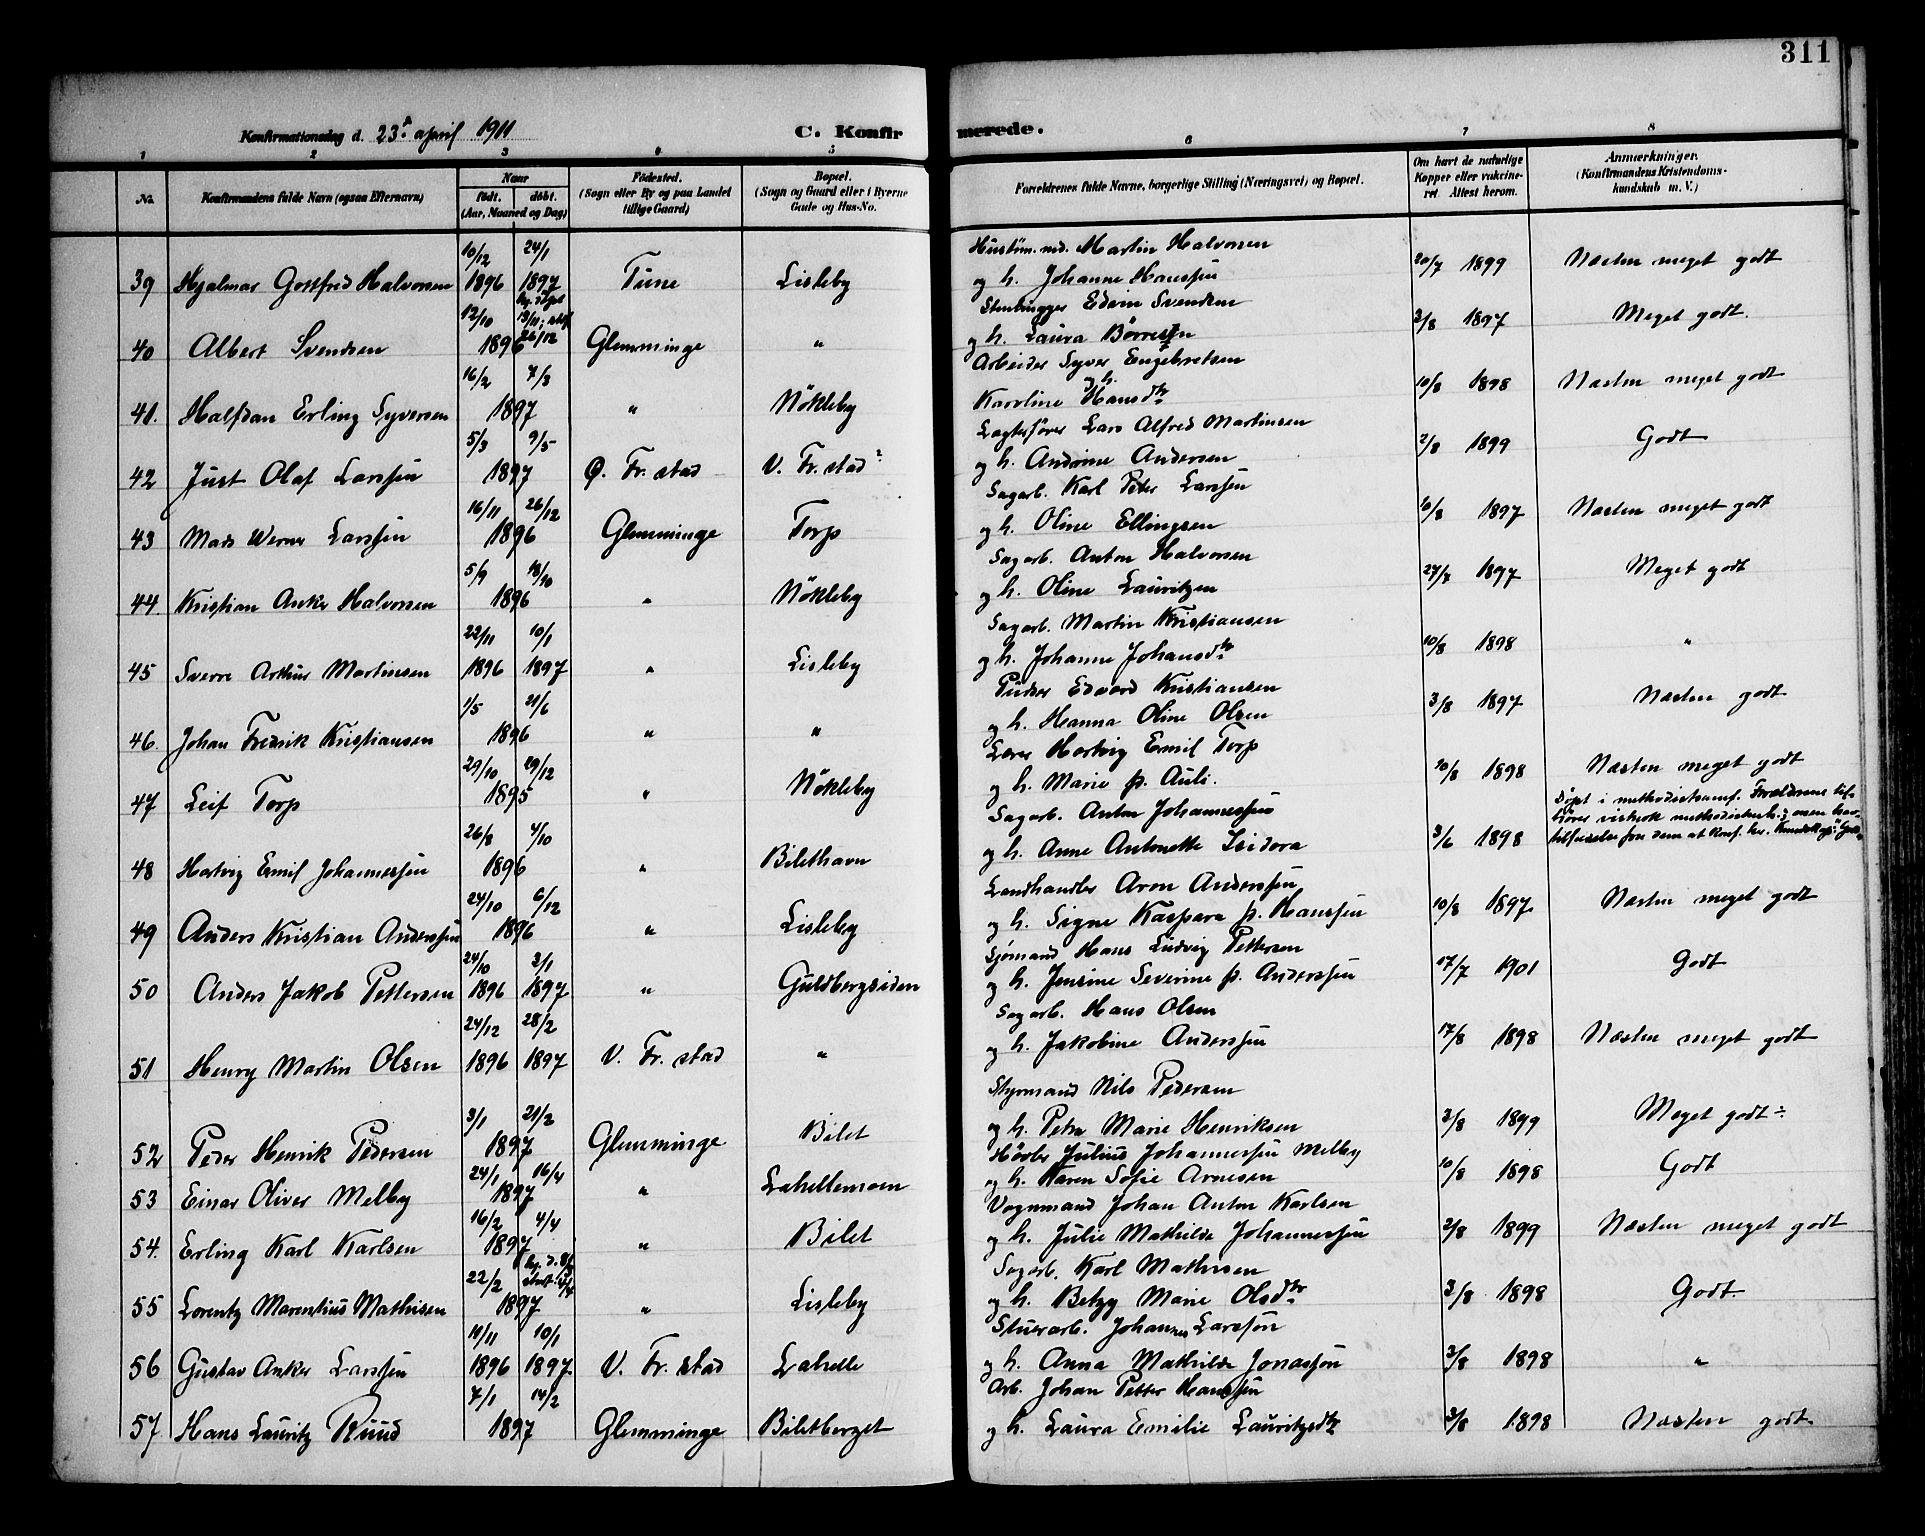 311
Konfirmationsdag d. 23. april 1911 C. Konfirmerede.
1 2 3 4 5 6 7 8
No. Konfirmandens fulde Navn (ogsaa Efternavn) Naar født. døbt. (Aar, Maaned og Dag) Fødested. (Sogn eller By og paa Landet tillige Gaard) Bopæl. (Sogn og Gaard eller i Byerne Gade og Hus-No. Forældrenes fulde Navne, borgerlige Stilling (Næringsvei) og Bopæl. Om havt de naturlige Kopper eller vaccineret. Attest herom. Anmærkninger. (Konfirmandens Kristendomskundskab m. V.)
10/12 24/1 Martin Halvorsen
39 Hjalmar Gottfred Halvorsen 1896 1897 Tune Lisleby og h. Johanne Hanssen 20/7 1899 Næsten meget godt
12/10 26/12 Stenhugger Edvin Svendsen
40 Albert Svendsen 1896 Glemminge " og h. Laura Börresen 2/8 1897 Meget godt.
16/2 7/3 Arbeider Syver Engebretsen
41. Halfdan Erling Syversen 1897 " Nökleby og h. Karoline Hansdtr 10/8 1898 Næsten meget godt
5/3 9/5 Lars Alfred Martinsen
42 Just Olaf Larssen 1897 Ø. Fr. stad V. Fr. stad og h. Andrine Andersen 2/8 1899 Godt
16/11 26/12 Sagarb. Karl Peter Larssen
43 Mads Werner Larssen 1896 Glemminge Torp og h. Oline Ellingsen 10/8 1897 Næsten meget godt
5/9 18/10 Sagarb. Anton Halvorsen
44. Kristian Anker Halvorsen 1896 " Nökleby og h. Oline Lauritzen 27/7 1897 Meget godt
22/11 10/1 Sagarb. Martin Kristiansen
45 Sverre Arthur Martinsen 1896 1897 " Lisleby og h. Johanne Johansdtr 10/8 1898 "
1/5 21/6 Pudser Edvard Kristiansen
46. Johan Fredrik Kristiansen 1896 " " og h. Hanna Oline Olsen 3/8 1897 Næsten godt
29/10 29/12 Lærer Hartvig Emil Torp
47 Leif Torp 1895 " Nökleby og h. Marie f. Auli. 10/8 1898 Næsten meget godt
26/8 4/10 Sagarb. Anton Johannessen Döpt i methodistsamf. Forældrene til-
48 Hartvig Emil Johannessen 1896 " Bilethavn og h. Anne Antonette Isidora 3/6 1898
24/10 6/12 Landhandler Aron Anderssen
49 Anders Kristian Anderssen 1896 " Lisleby og h. Signe Kaspara f. Hanssen 10/8 1897 Næsten meget godt
24/10 3/1 Sjømand Hans Ludvig Pettersen
50 Anders Jakob Pettersen 1896 1897 " Guldbergsiden og h. Jensine Severine f. Anderssen 17/7 1901 Godt
24/12 28/2 Sagarb. Hans Olsen
51 Henry Martin Olsen 1896 1897 V. Fr. stad " og h. Jakobine Anderssen 17/8 1898 Næsten meget godt
3/1 21/2 Styrmand Nils Pedersen
52 Peder Henrik Pedersen 1897 Glemminge Bilet og h. Petra Marie Henriksen 2/8 1899 Meget godt
24/1 16/4 Hövler Julius Johannessen Melby
53 Einar Oliver Melby 1897 " Lahellemoen og h. Karen Sofie Arnesen 10/8 1898 Godt
16/2 4/4 Vognmand Johan Anton Karlsen
54. Erling Karl Karlsen 1897 " Bilet og h. Julie Mathilde Johannessen 2/8 1899 Næsten meget godt
22/2 Sagarb. Karl Mathisen
55 Lorentz Marentius Mathisen 1897 " Lisleby og h. Betzy Marie Olsdtr 3/8 1898 Godt.
10/1 Stuerarb. Johannes Larssøn
56 Gustav Anker Larssen 1896 1897 V. Fr. stad Lahelle og h. Anna Mathilde Jonassøn 3/8 1898 "
7/1 14/2 Arb. Johan Petter Hanssen
57 Hans Lauritz Ruud 1897 Glemminge Biletberget og h. Laura Emilie Lauritzdtr 3/8 1898 Næsten godt